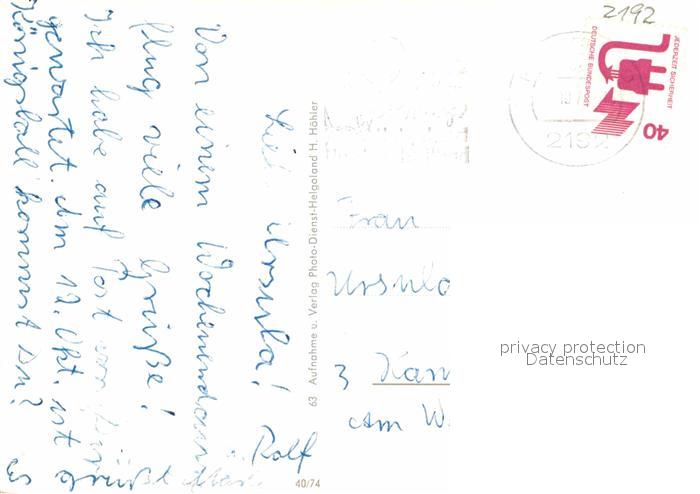 Liebe Ursula!
Von einem Wochenendaus
flug viele Grüße!
Ich habe auf Post von
gewartet. Am 12. Okt. ist
Königsball kommst Du?
Es grüßt
u. Rolf
63 Aufnahme u. Verlag Photo-Dienst-Helgoland H. Höhler
40/74
2192
JEDERZEIT SICHERHEIT
DEUTSCHE BUNDESPOST
40
2192
Frau
Ursula
3 Han
am W.
privacy protection
Datenschutz